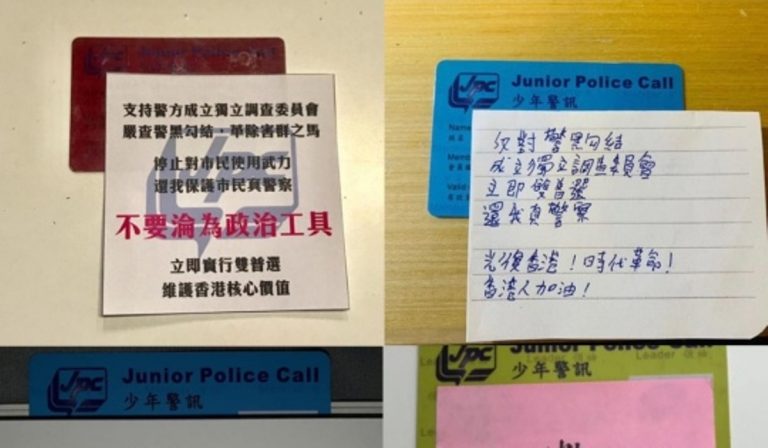 Junior Police Call
支持警方成立獨立調查委員會
嚴查警黑勾結，革除害群之馬
停止對市民使用武力
還我保護市民真警察
不要淪為政治工具
立即實行雙普選
維護香港核心價值
JPC
Junior Police Call
少年警訊
Name
姓名
Valid
反對警黑勾結
成立獨立調查委員會
立即雙普選
還我真警察
光復香港！時代革命！
香港人加油！
JPC
Junior Police Call
少年警訊
JPC
Junior Police Call
Leader
少年警訊